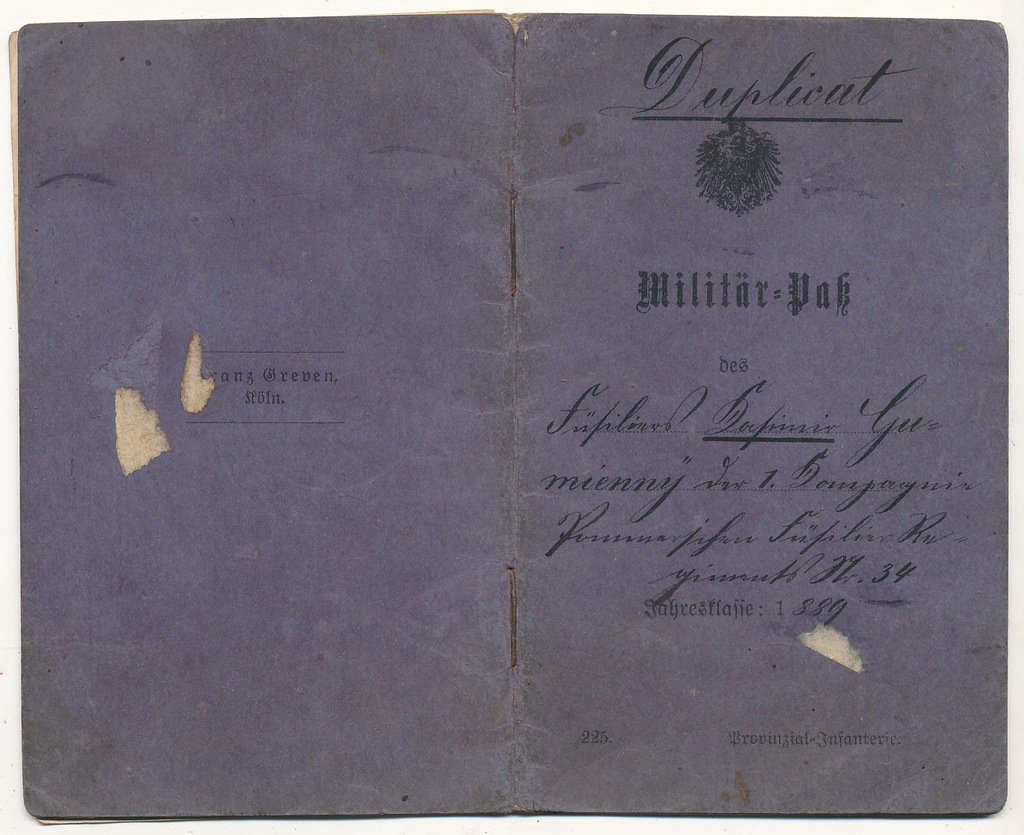 ranz Greven,
Köln.
Duplicat
Militär-Paß
des
Füsiliers Kasimir Gu-
mienny der 1. Kompagnie
Pommerschen Füsilier Re-
giments Nr. 34
Jahresklasse: 1889
225. Provinzial-Infanterie.